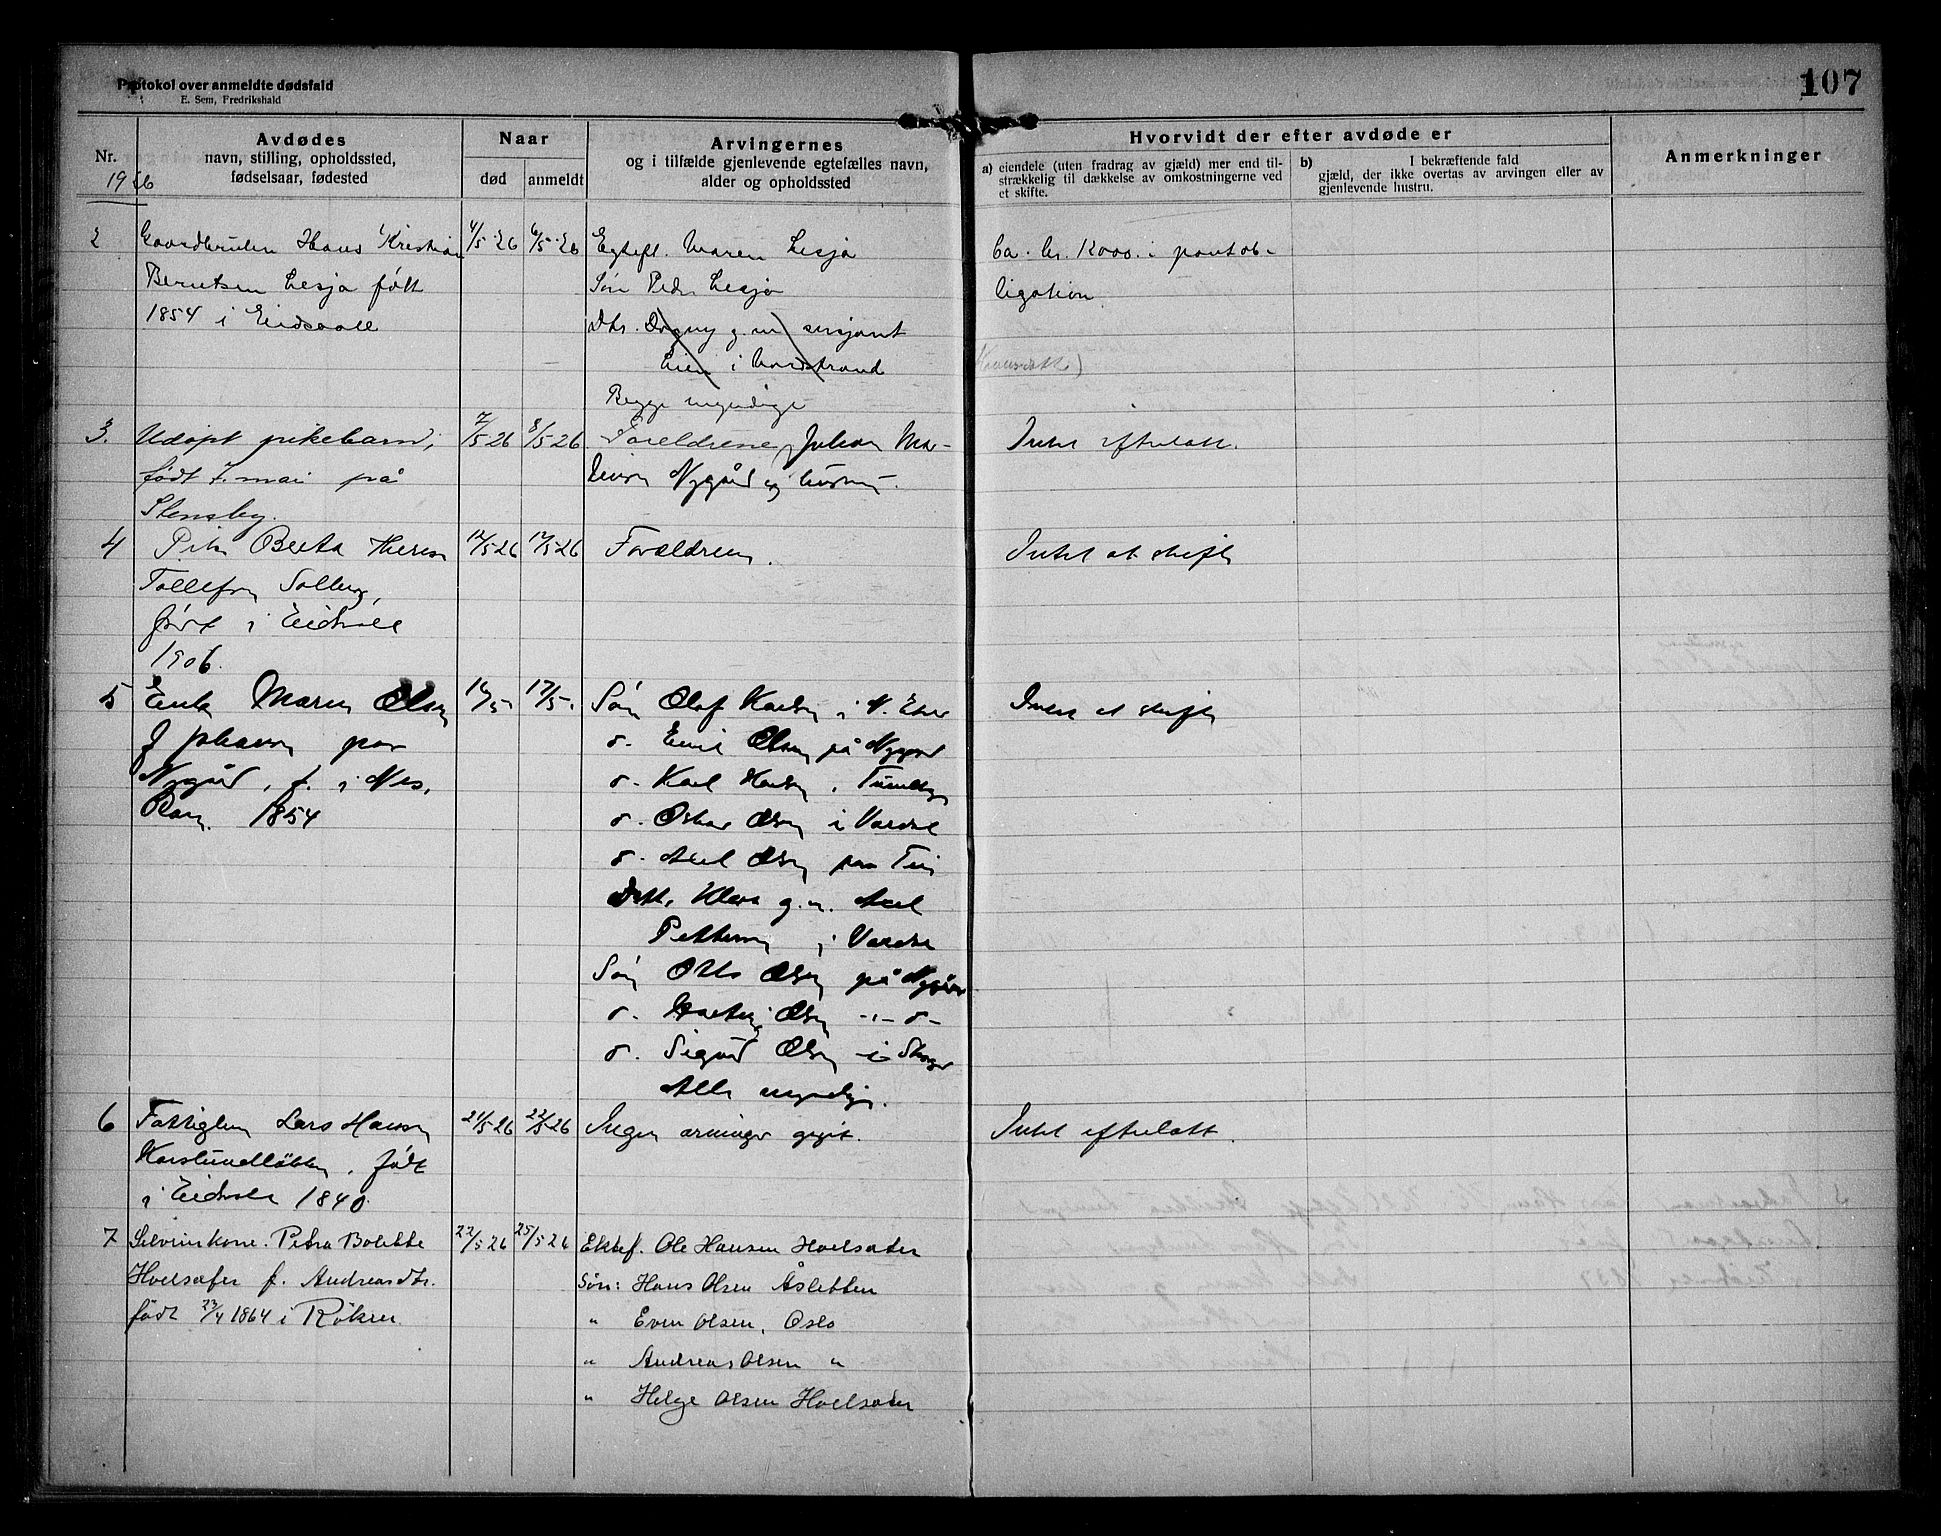 Protokol over anmeldte dødsfald
E. Sem, Fredrikshald
107
Nr.
1926
Avdødes
navn, stilling, opholdssted,
fødselsaar, fødested
Naar
død
anmeldt
Arvingernes
og i tilfælde gjenlevende egtefælles navn,
alder og opholdssted
Hvorvidt der efter avdøde er
a) eiendele (uten fradrag av gjæld) mer end til-
strækkelig til dækkelse av omkostningerne ved
et skifte.
b) I bekræftende fald
gjæld, der ikke overtas av arvingen eller av
gjenlevende hustru.
Anmerkninger
2
Hans Kristian
Berntsen Lesja født
1854 i Eidsvoll
4/5-26
6/5-26
Egtef. Maren Lesja
Søn Peder Lesja
Dtr. Dagny g.m. sersjant
i Nordstrand
Begge myndige
ca. kr. 12000 i pantob-
ligation.
3.
Udøpt pikebarn,
født 7. mai på
Stensby.
7/5 26
8/5-26
Foreldrene, Johan Ma-
Nygård og hustru.
Intet efterlatt.
4
Pike Berta Theresе
Tollefsen Solberg,
født i Eidsvoll
1906.
12/5-26
17/5-26
Forældrene.
Intet at skifte
5
Enke Maren Olsen
f. Johansen paa
Nygård, f. i Nes,
Rom. 1854
16/5-
17/5-
Søn Olaf Karlsen i N.
d. Emil Olsen på Nygård
d. Karl
d. Oskar Olsen i Vardal
d. Axel Olsen paa
Dtr. Klara g.m. Axel
Pettersen i Vardal
Søn Otto Olsen på Nygård
d. Olsen -"- d-
d. Sigurd Olsen i
Alle myndige.
Intet at skifte
6
Fattiglem Lars Hansen
Karslundløkken, født
i Eidsvoll 1840.
21/5 26
22/5 26
Ingen arvinger opgit.
Intet efterlatt.
7
Selveierkone Petra Bolette
Hoelsæter f. Andreasdtr.
født 23/4 1864 i Røken.
22/5 26
25/5 26
Ektef. Ole Hansen Hoelsæter
Søn: Hans Olsen Åsletten
" Even Olsen, Oslo
" Andreas Olsen "
" Helge Olsen Hoelsæter